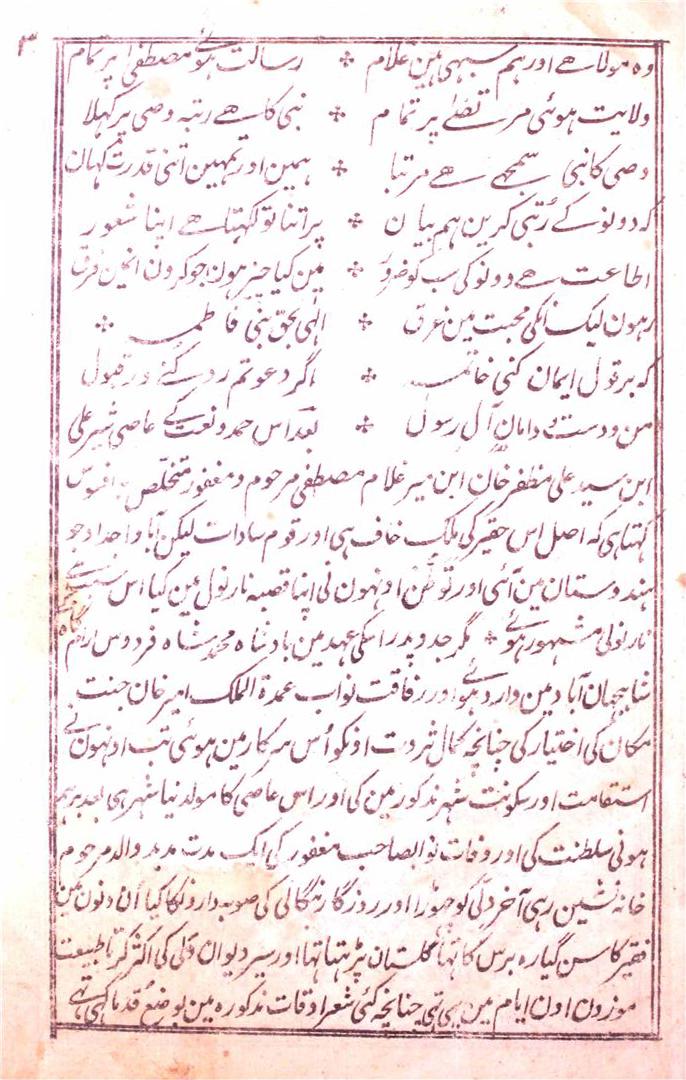 ۳
وہ مولا ہے اور ہم سبھی ہین غلام ÷ رسالت ہوئے مصطفےٰ پر تمام
ولایت ہوئی مرتضےٰ پر تمام ÷ نبی کا ہے رتبہ وصی پر کھلا
وصی کا نبی سمجھے ہے مرتبا ÷ ہمین اور تمہین اتنی قدرت کہان
کہ دونو کے رتبی کرین ہم بیان ÷ پر اتنا تو کہتا ہے اپنا شعور
اطاعت ہے دونو کی سب کو ضرور ÷ مین کیا چیز ہون جو کرون انمین فرق
رہون لیک انکی محبت مین غرق ÷ الٰہی بحق بنی فاطمہ ÷
کہ بر قول ایمان کنی خاتمہ ÷ اگر دعوتم رد کنے ور قبول
من و دست و دامان آل رسول ÷ بعد اس حمد و نعت کے عاصی شیر علی
ابن سید علی مظفر خان ابن میر غلام مصطفیٰ مرحوم و مغفور متخلص بہ افسوس
کہتا ہی کہ اصل اس حقیر کی ملک خاف ہی اور قوم سادات لیکن آبا و اجداد جو
ہندوستان مین آئی اور توطن اونہون نی اپنا قصبہ نارنول مین کیا اس سبب سے
نارنولی مشہور ہوئے ÷ مگر جد و پدر اسکی عہد مین بادشاہ محمد شاہ فردوس آرامگاہ کے
شاہجہان آباد مین وارد ہوئے اور رفاقت نواب عمدۃ الملک امیر خان جنت
مکان کی اختیار کی چنانچہ کمال ثروت اونکو اُس سرکار مین ہوئی تب اونہون نے
استقامت اور سکونت شہر مذکور مین کی اور اس عاصی کا مولد نیا شہر ہی بعد برہم
ہونی سلطنت کی اور وفات نوابصاحب مغفور کی ایک مدت مدید والد مرحوم
خانہ نشین رہی آخر دلّی کو چھوڑا اور روزگار بنگالی کی صوبہ دارونکا کیا اُن دنون مین
فقیر کا سن گیارہ برس کا تھا گلستان پڑہتا تھا اور سیر دیوان ولی کی اکثر کرتا طبیعت
موزون اون ایام مین بھی تھی چنانچہ کئی شعر اوقات مذکورہ مین بوضع قدما کہی تھے